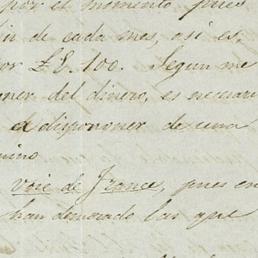 por el momento, pues
de cada mes, asi es
or £E. 100. Segun me
ner del dinero, es necesari
a disponer de una
mino
voie de France, pues en
han demorado las que